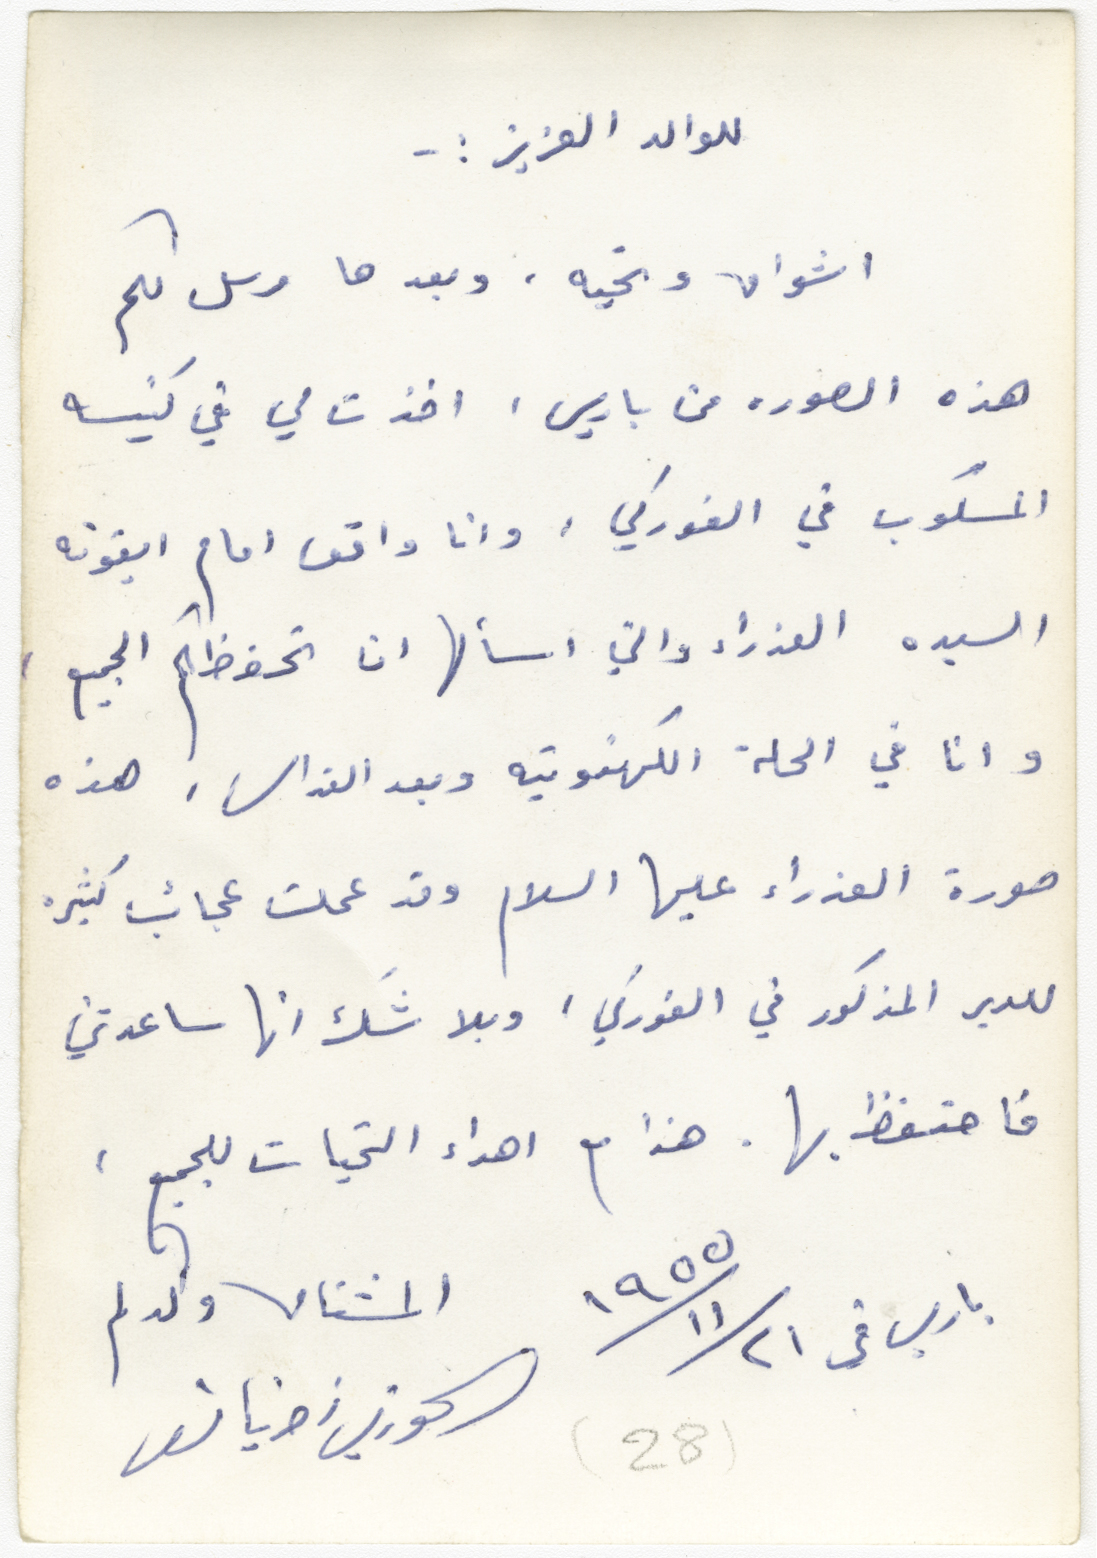 للوالد العزيز :-
اشواق وتحيه ، وبعد ها مرسل لكم
هذه الصوره من باريس ، اخذت لي في كنيسه
المسكوب في الفوركي ، وانا واقف امام ايقونه
السيده العذراء والتي اسألها ان تحفظكم الجميع ،
وانا في الحلة الكهنوتيه وبعد القداس ، هذه
صورة العذراء عليها السلام وقد عملت عجائب كثيره
للدير المذكور في الفوركي ، وبلا شك انها ساعدتني
فاحتفظ بها . هذا مع اهداء التحيات للجميع ،
باريس في ٢١/١١/١٩٥٥ المشتاق ولدكم
الخوري
(28)